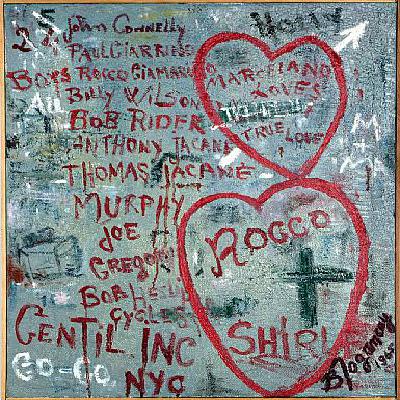 25
John Connelly
PAUL GIARRISO
BOYS ROCCO GIAMARINO
BILLY WILSON
BOB RIDER
ANTHONY JACANE
THOMAS JACANE
MURPHY
JOE
GREGORY
BOB HELU
CYCLES
GENTIL INC
GO-GO
NYC
MARCELANO
LOVES
TRUE LOVE
M
+
MA
ROCCO
+
SHIRL
1965